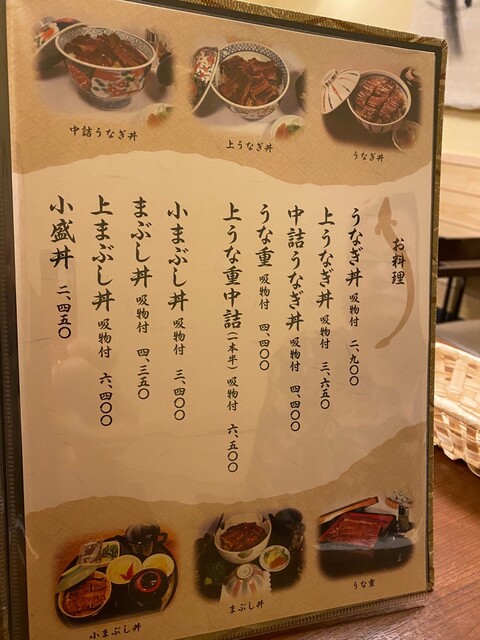 中詰うなぎ丼
上うなぎ丼
うなぎ丼
お料理
うなぎ丼 吸物付 二、九〇〇
上うなぎ丼 吸物付 三、六五〇
中詰うなぎ丼 吸物付 四、四〇〇
うな重 吸物付 四、四〇〇
上うな重中詰(一本半) 吸物付 六、五〇〇
小まぶし丼 吸物付 三、四〇〇
まぶし丼 吸物付 四、三五〇
上まぶし丼 吸物付 六、四〇〇
小盛丼 二、四五〇
小まぶし丼
まぶし丼
うな重